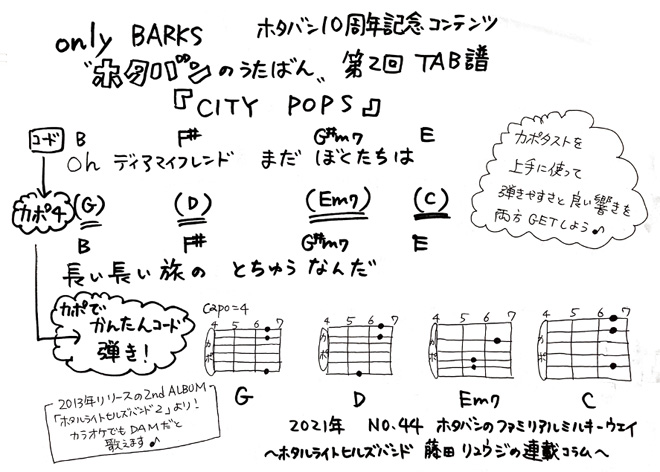 only BARKS ホタバン10周年記念コンテンツ
"ホタバンのうたばん" 第2回 TAB譜
『CITY POPS』
コード B F# G#m7 E
Oh ディアマイフレンド まだ ぼくたちは
カポタストを
上手に使って
弾きやすさと良い響きを
両方GETしよう♪
カポ4 (G) (D) (Em7) (C)
B F# G#m7 E
長い長い旅の とちゅうなんだ
カポで
かんたんコード
弾き!
Capo=4
4 5 6 7 4 5 6 7 4 5 6 7 4 5 6 7
カポ カポ カポ カポ
G D Em7 C
2013年リリースの2nd ALBUM
「ホタルライトヒルズバンド2」より!
カラオケでもDAMだと
歌えます♪
2021年 NO.44 ホタバンのファミリアルミルキーウェイ
～ホタルライトヒルズバンド 藤田リュウジの連載コラム～